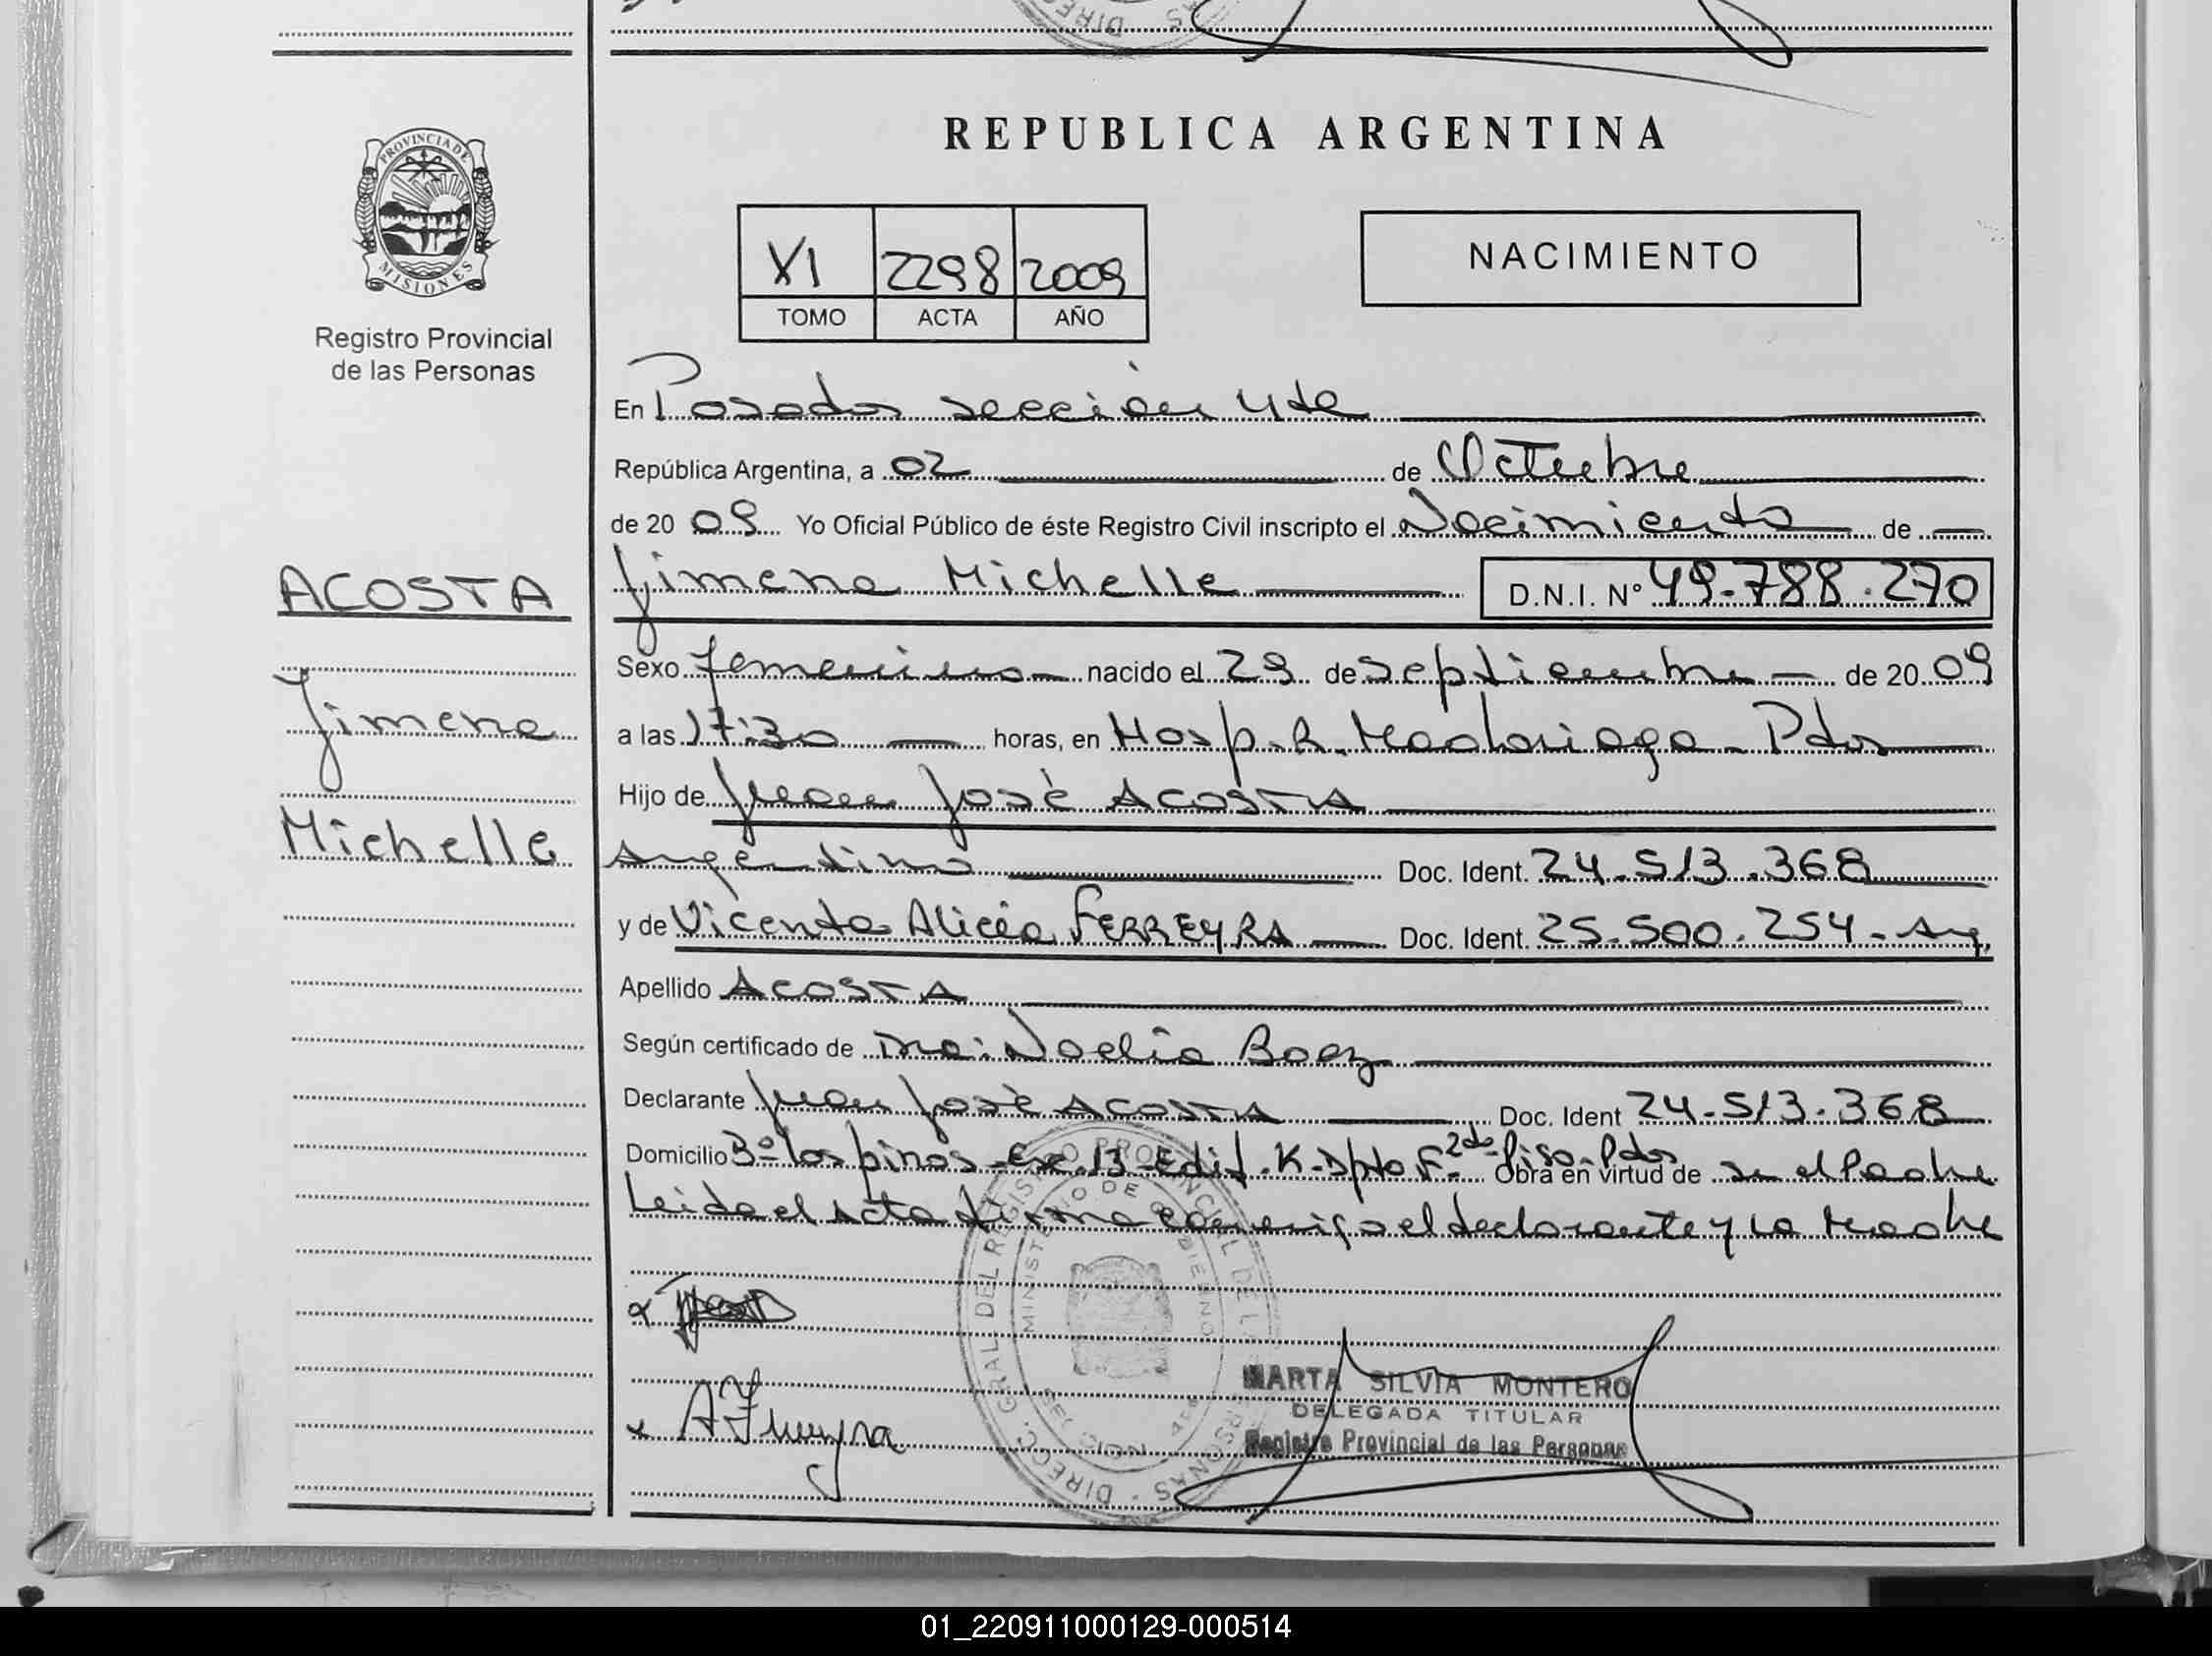 REPUBLICA ARGENTINA
PROVINCIA DE
MISIONES
Registro Provincial
de las Personas
XI 2298 2009
TOMO ACTA AÑO
NACIMIENTO
En Posadas sección 4ta
República Argentina, a 02 de Octubre
de 20 09 Yo Oficial Público de éste Registro Civil inscripto el Nacimiento de
ACOSTA
Jimena
Michelle
Jimena Michelle D.N.I. N° 49.788.270
Sexo femenino nacido el 29 de Septiembre de 20 09
a las 17:30 horas, en Hosp. R. Madariaga - Pdas
Hijo de Juan José ACOSTA
Argentino Doc. Ident. 24.513.368
y de Vicenta Alicia FERREYRA Doc. Ident. 25.500.254 - Arg.
Apellido ACOSTA
Según certificado de Dra: Noelia Baez
Declarante Juan José ACOSTA Doc. Ident 24.513.368
Domicilio Bº los pinos - Esc. 13 - Edif. K - Dpto F - 2do piso - Pdas Obra en virtud de ser el Padre
Leida el Acta firma conmigo el declarante y la Madre
A Ferreyra
MARTA SILVIA MONTERO
DELEGADA TITULAR
Registro Provincial de las Personas
DIRECC. GRAL DEL REGISTRO PROVINCIAL DE LAS PERSONAS
MINISTERIO DE GOBIERNO
SECCION 4ta
01_220911000129-000514